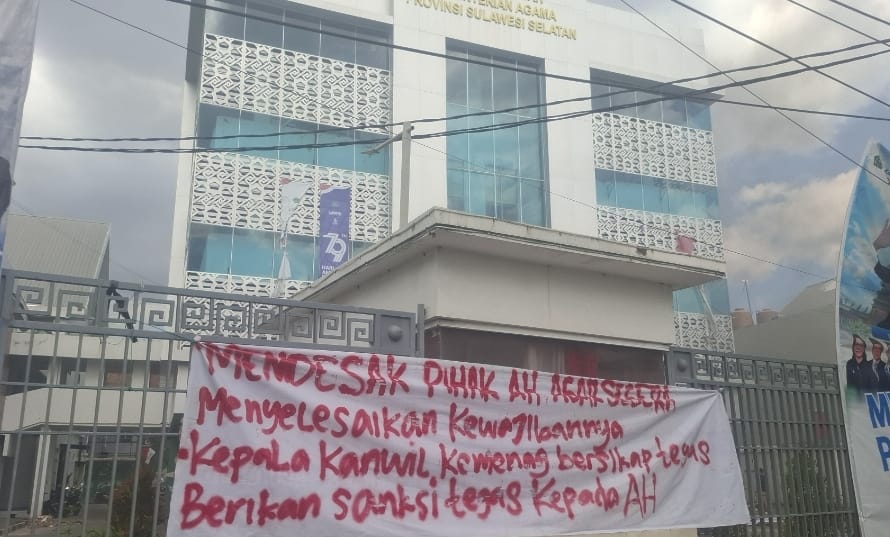 KEMENTERIAN AGAMA
PROVINSI SULAWESI SELATAN
79
HARI
MENDESAK PIHAK AH AGAR SEGERA
Menyelesaikan Kewajibannya
- Kepala Kanwil Kemenag bersikap tegas
Berikan sanksi tegas Kepada AH